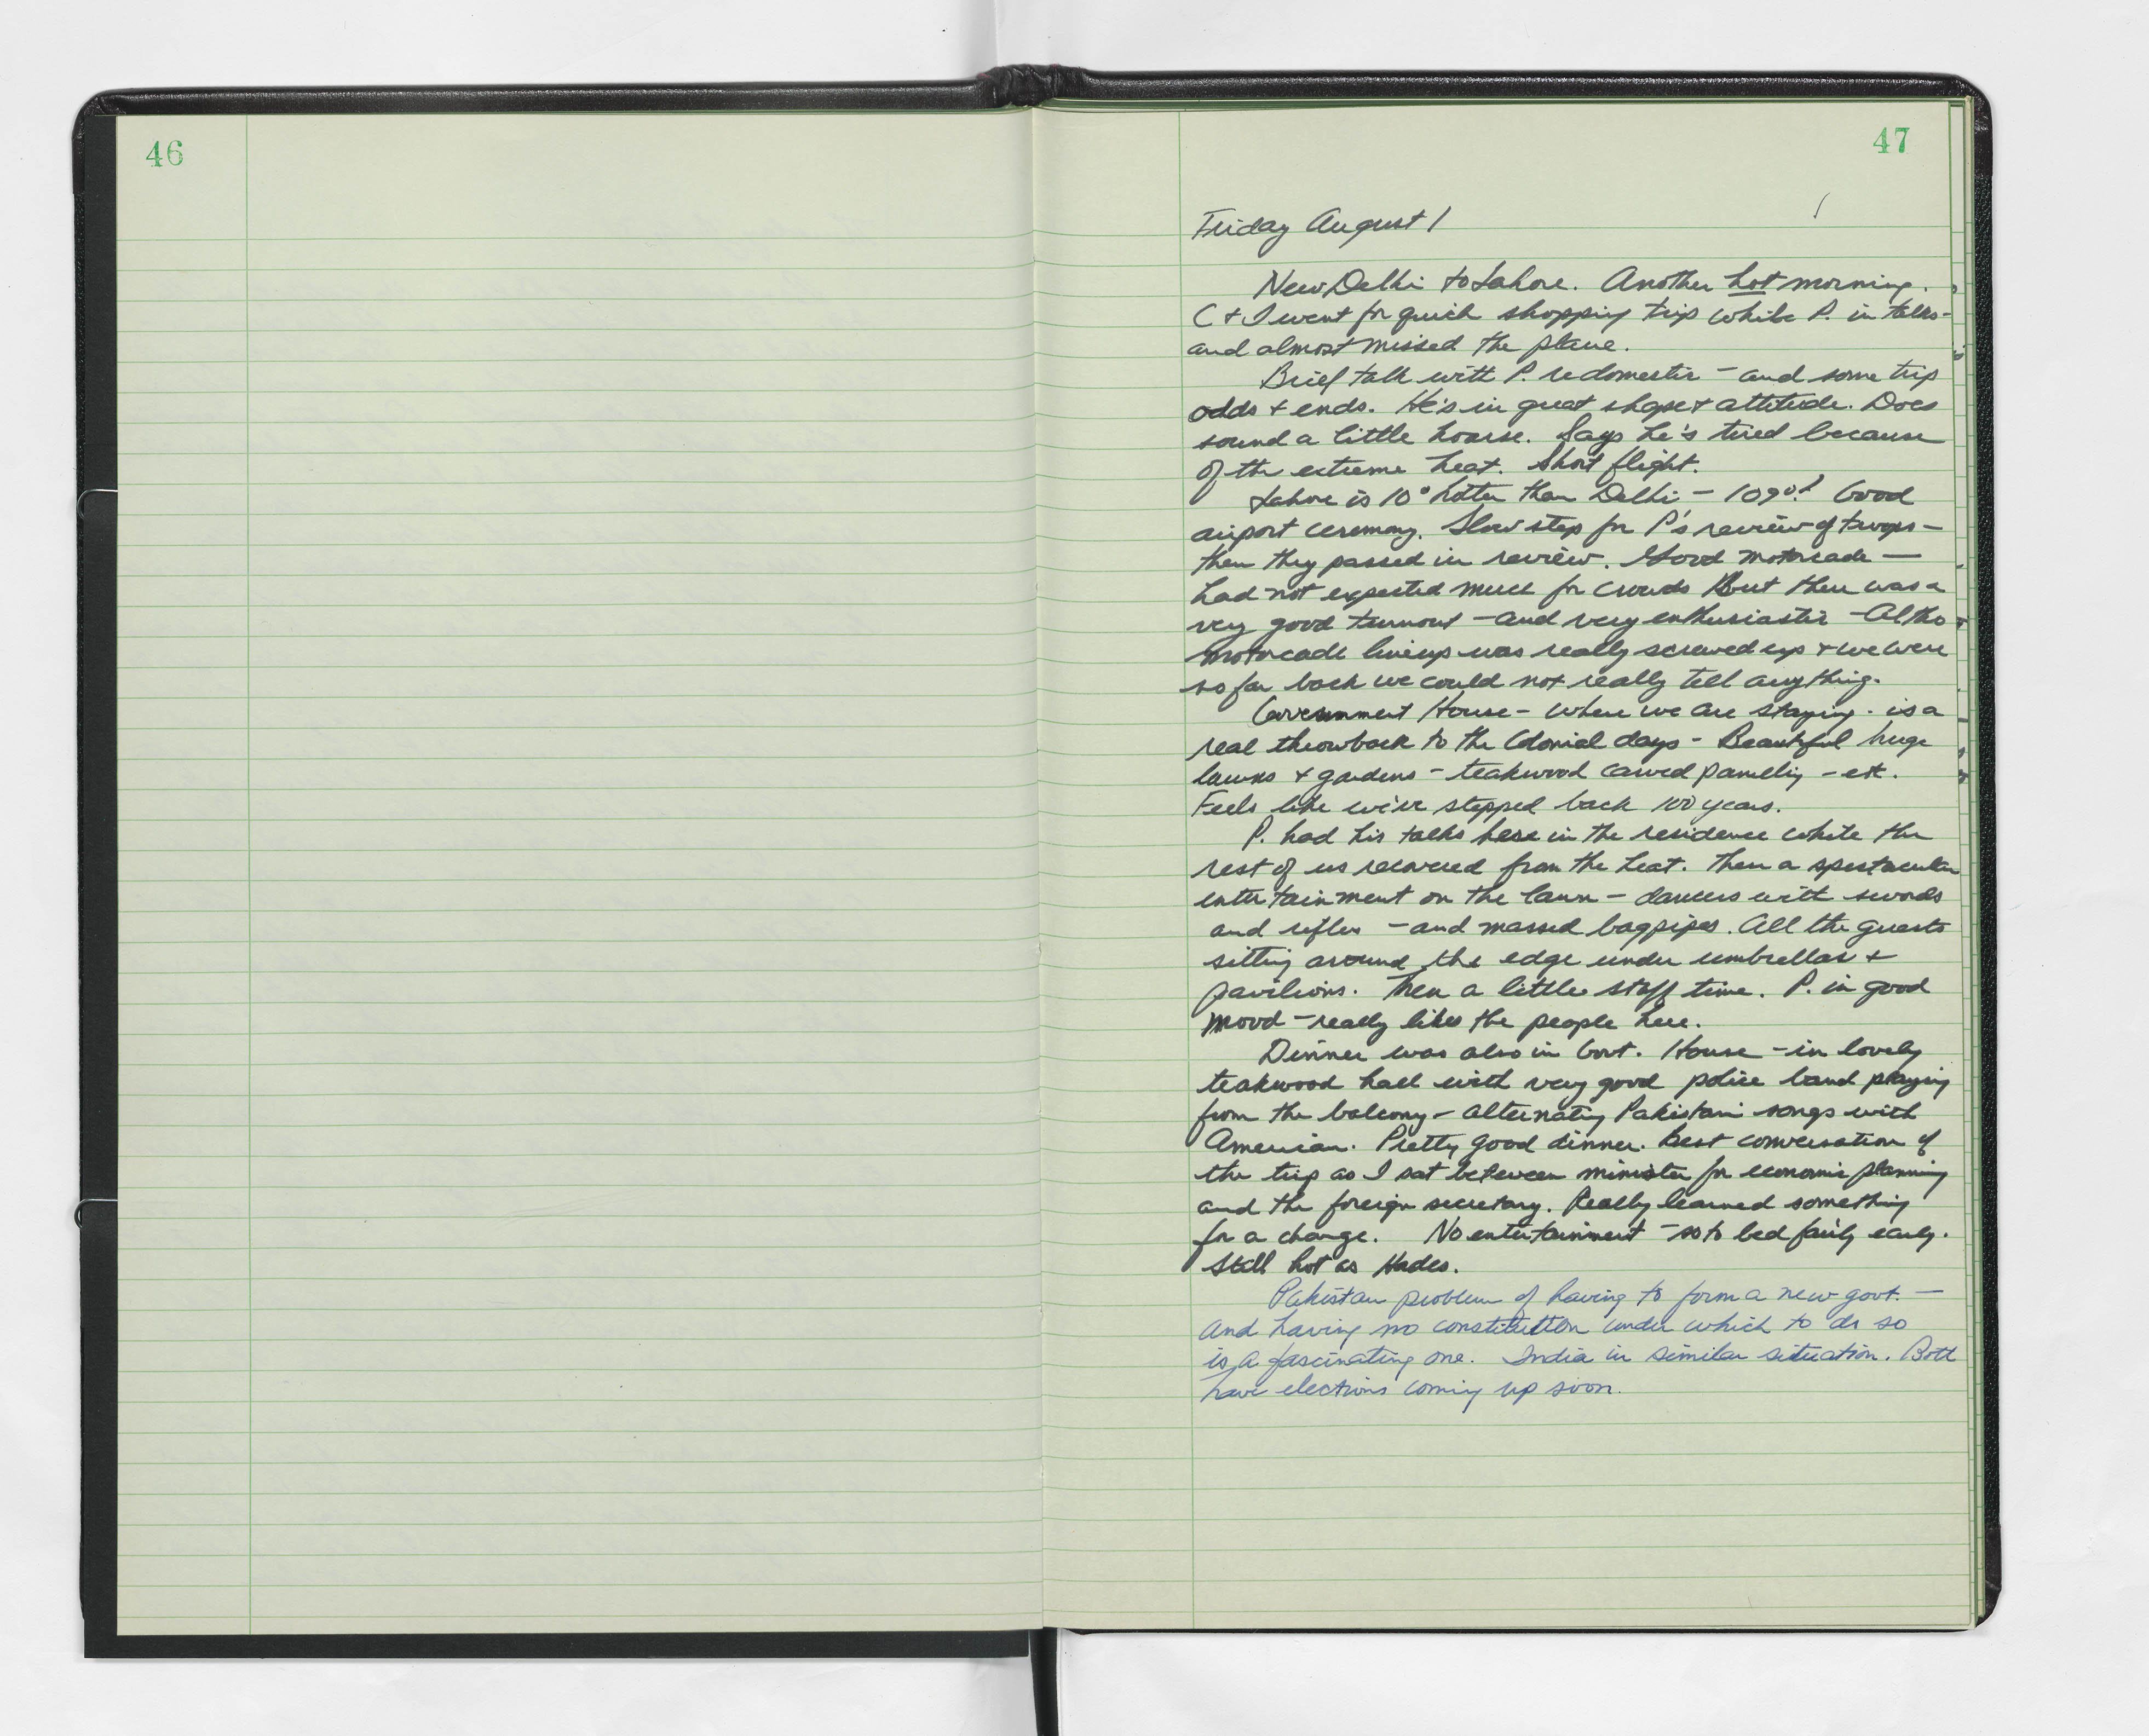 46
47
Friday August 1
New Delhi to Lahore. Another hot morning.
C + I went for quick shopping trip while P. in talks -
and almost missed the plane.
Brief talk with P. re domestic - and some trip
odds + ends. He's in great shape + attitude. Does
sound a little hoarse. Says he's tired because
of the extreme heat. Short flight.
Lahore is 10° hotter than Delhi - 109°! Good
airport ceremony. Slow step for P's review of troops -
then they passed in review. Good motorcade -
had not expected much for crowds But there was a
very good turnout - and very enthusiastic - Altho
motorcade lineup was really screwed up + we were
so far back we could not really tell anything.
Government House - where we are staying - is a
real throwback to the Colonial days - Beautiful huge
lawns + gardens - teakwood carved panelling - etc.
Feels like we've stepped back 100 years.
P. had his talks here in the residence while the
rest of us recovered from the heat. Then a spectacular
entertainment on the lawn - dancers with swords
and rifles - and massed bagpipes. All the guests
sitting around the edge under umbrellas +
pavilions. Then a little staff time. P. in good
mood - really likes the people here.
Dinner was also in Govt. House - in lovely
teakwood hall with very good police band playing
from the balcony - alternating Pakistani songs with
American. Pretty good dinner. Best conversation of
the trip as I sat between minister for economic planning
and the foreign secretary. Really learned something
for a change. No entertainment - so to bed fairly early.
Still hot as Hades.
Pakistan problem of having to form a new govt. -
and having no constitution under which to do so
is a fascinating one. India in similar situation. Both
have elections coming up soon.